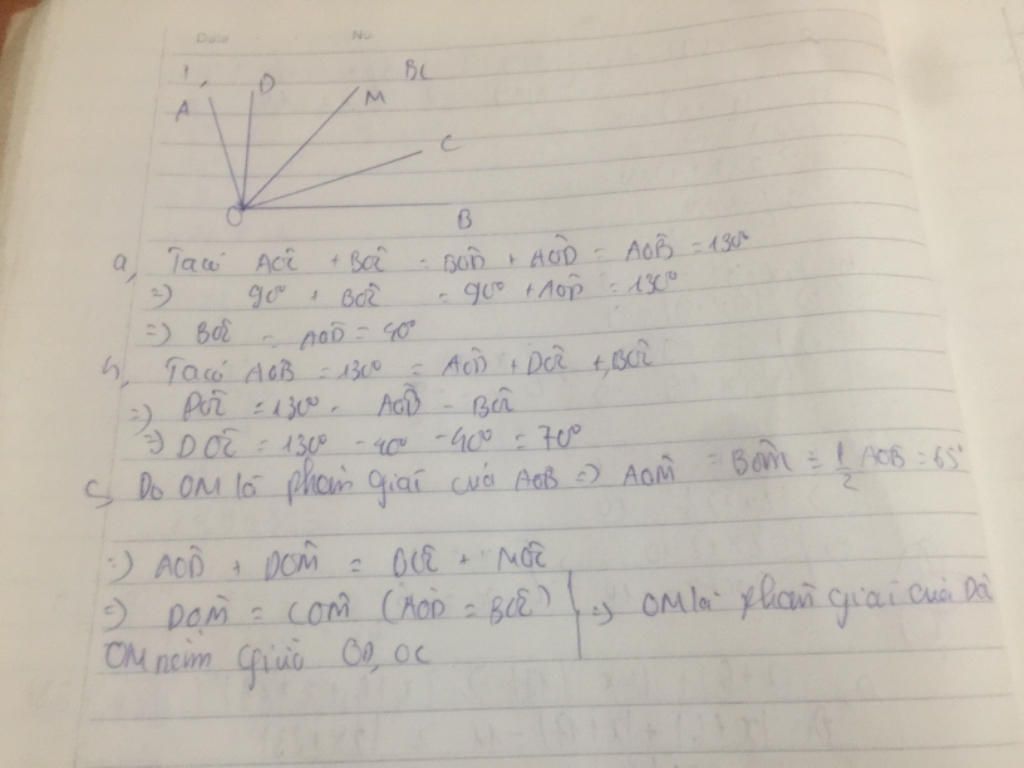 Date No
1,
A D M BC
C
O B
a, Ta có AOĈ + BOĈ = BOD̂ + AOD̂ = AOB̂ = 130°
=) 90° + BOĈ = 90° + AOD̂ = 130°
=) BOĈ = AOD̂ = 40°
b, Ta có AOB̂ = 130° = AOD̂ + DOĈ + BOĈ
=) DOĈ = 130° - AOD̂ - BOĈ
=) DOĈ = 130° - 40° - 40° = 70°
c, Do OM là phân giải của AOB =) AOM̂ = BOM̂ = 1/2 AOB = 65°
=) AOD̂ + DOM̂ = BOĈ + MOĈ
=) DOM̂ = COM̂ (AOD̂ = BOĈ) =) OM là phân giải của
OM nằm giữa OD, OC